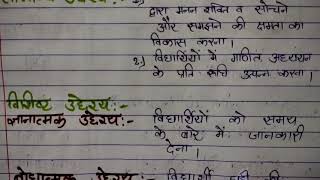 सामान्य उद्देश्य :- 1.)
द्वारा मनन शक्ति व सोचने
और समझने की क्षमता का
विकास करना।
2.) विद्यार्थियों में गणित अध्ययन
के प्रति रूचि उत्पन्न करना।
विशिष्ट उद्देश्य:-
ज्ञानात्मक उद्देश्य:- विद्यार्थियों को समय
के बारे में जानकारी
देना।
बोधात्मक उद्देश्य :- विद्यार्थी